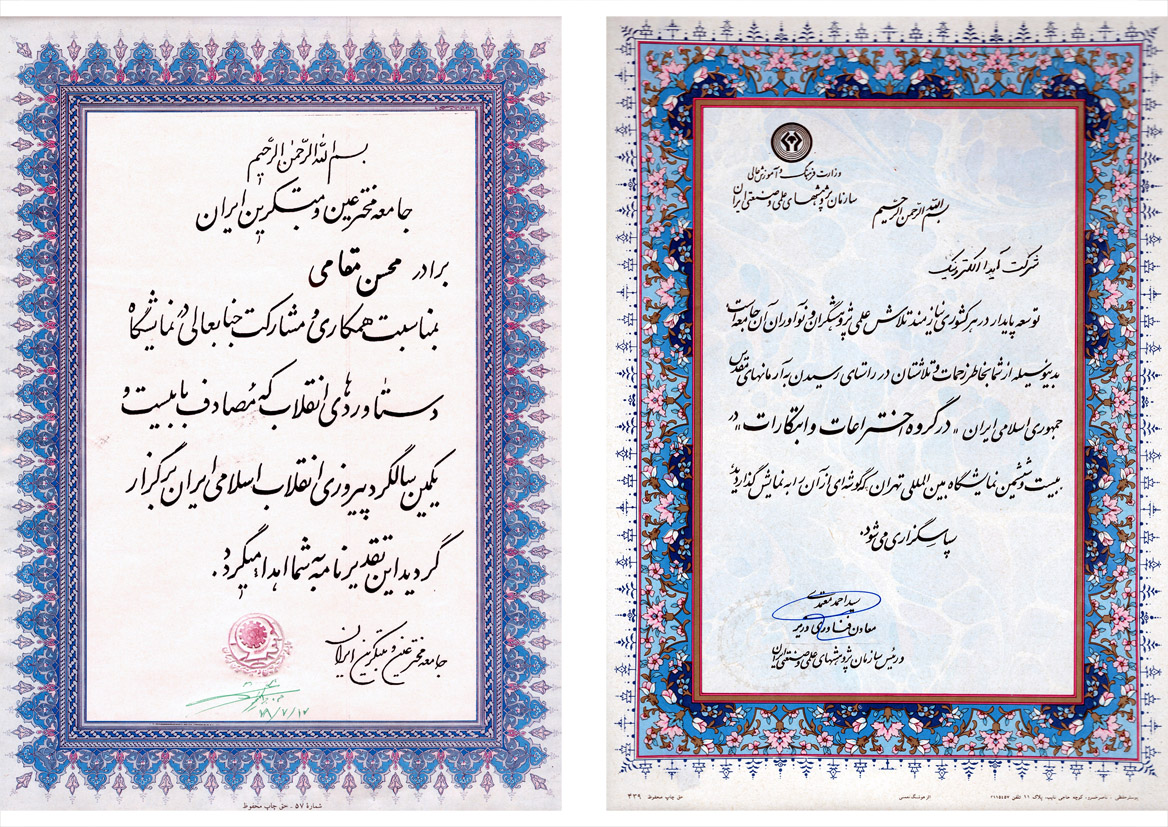 بسم الله الرّحمٰن الرّحیم
جامعه مخترعین و مبتکرین ایران
برادر محسن مقامی
بمناسبت همکاری و مشارکت جنابعالی در نمایشگاه
دستاوردهای انقلاب که مصادف با بیست و
یکمین سالگرد پیروزی انقلاب اسلامی ایران برگزار
گردید این تقدیرنامه به شما اهدا میگردد.
جامعه مخترعین و مبتکرین ایران
۷۹/۷/۱۲
شمارهٔ ۵۷ - حق چاپ محفوظ
وزارت فرهنگ و آموزش عالی
سازمان پژوهشهای علمی و صنعتی ایران
بسم الله الرحمن الرحیم
شرکت آیدا الکترونیک
توسعه پایدار در هر کشوری نیازمند تلاش علمی پژوهشگران و نوآوران آن جامعه است
بدینوسیله از شما بخاطر زحمات و تلاشتان در راستای رسیدن به آرمانهای مقدس
جمهوری اسلامی ایران " در گروه اختراعات و ابتکارات " در
بیست و ششمین نمایشگاه بین المللی تهران که گوشه ای از آن را به نمایش گذاردید
سپاسگزاری می شود.
سید احمد معتمدی
معاون فناوری وزیر
و رئیس سازمان پژوهشهای علمی و صنعتی ایران
حق چاپ محفوظ ۴۳۹